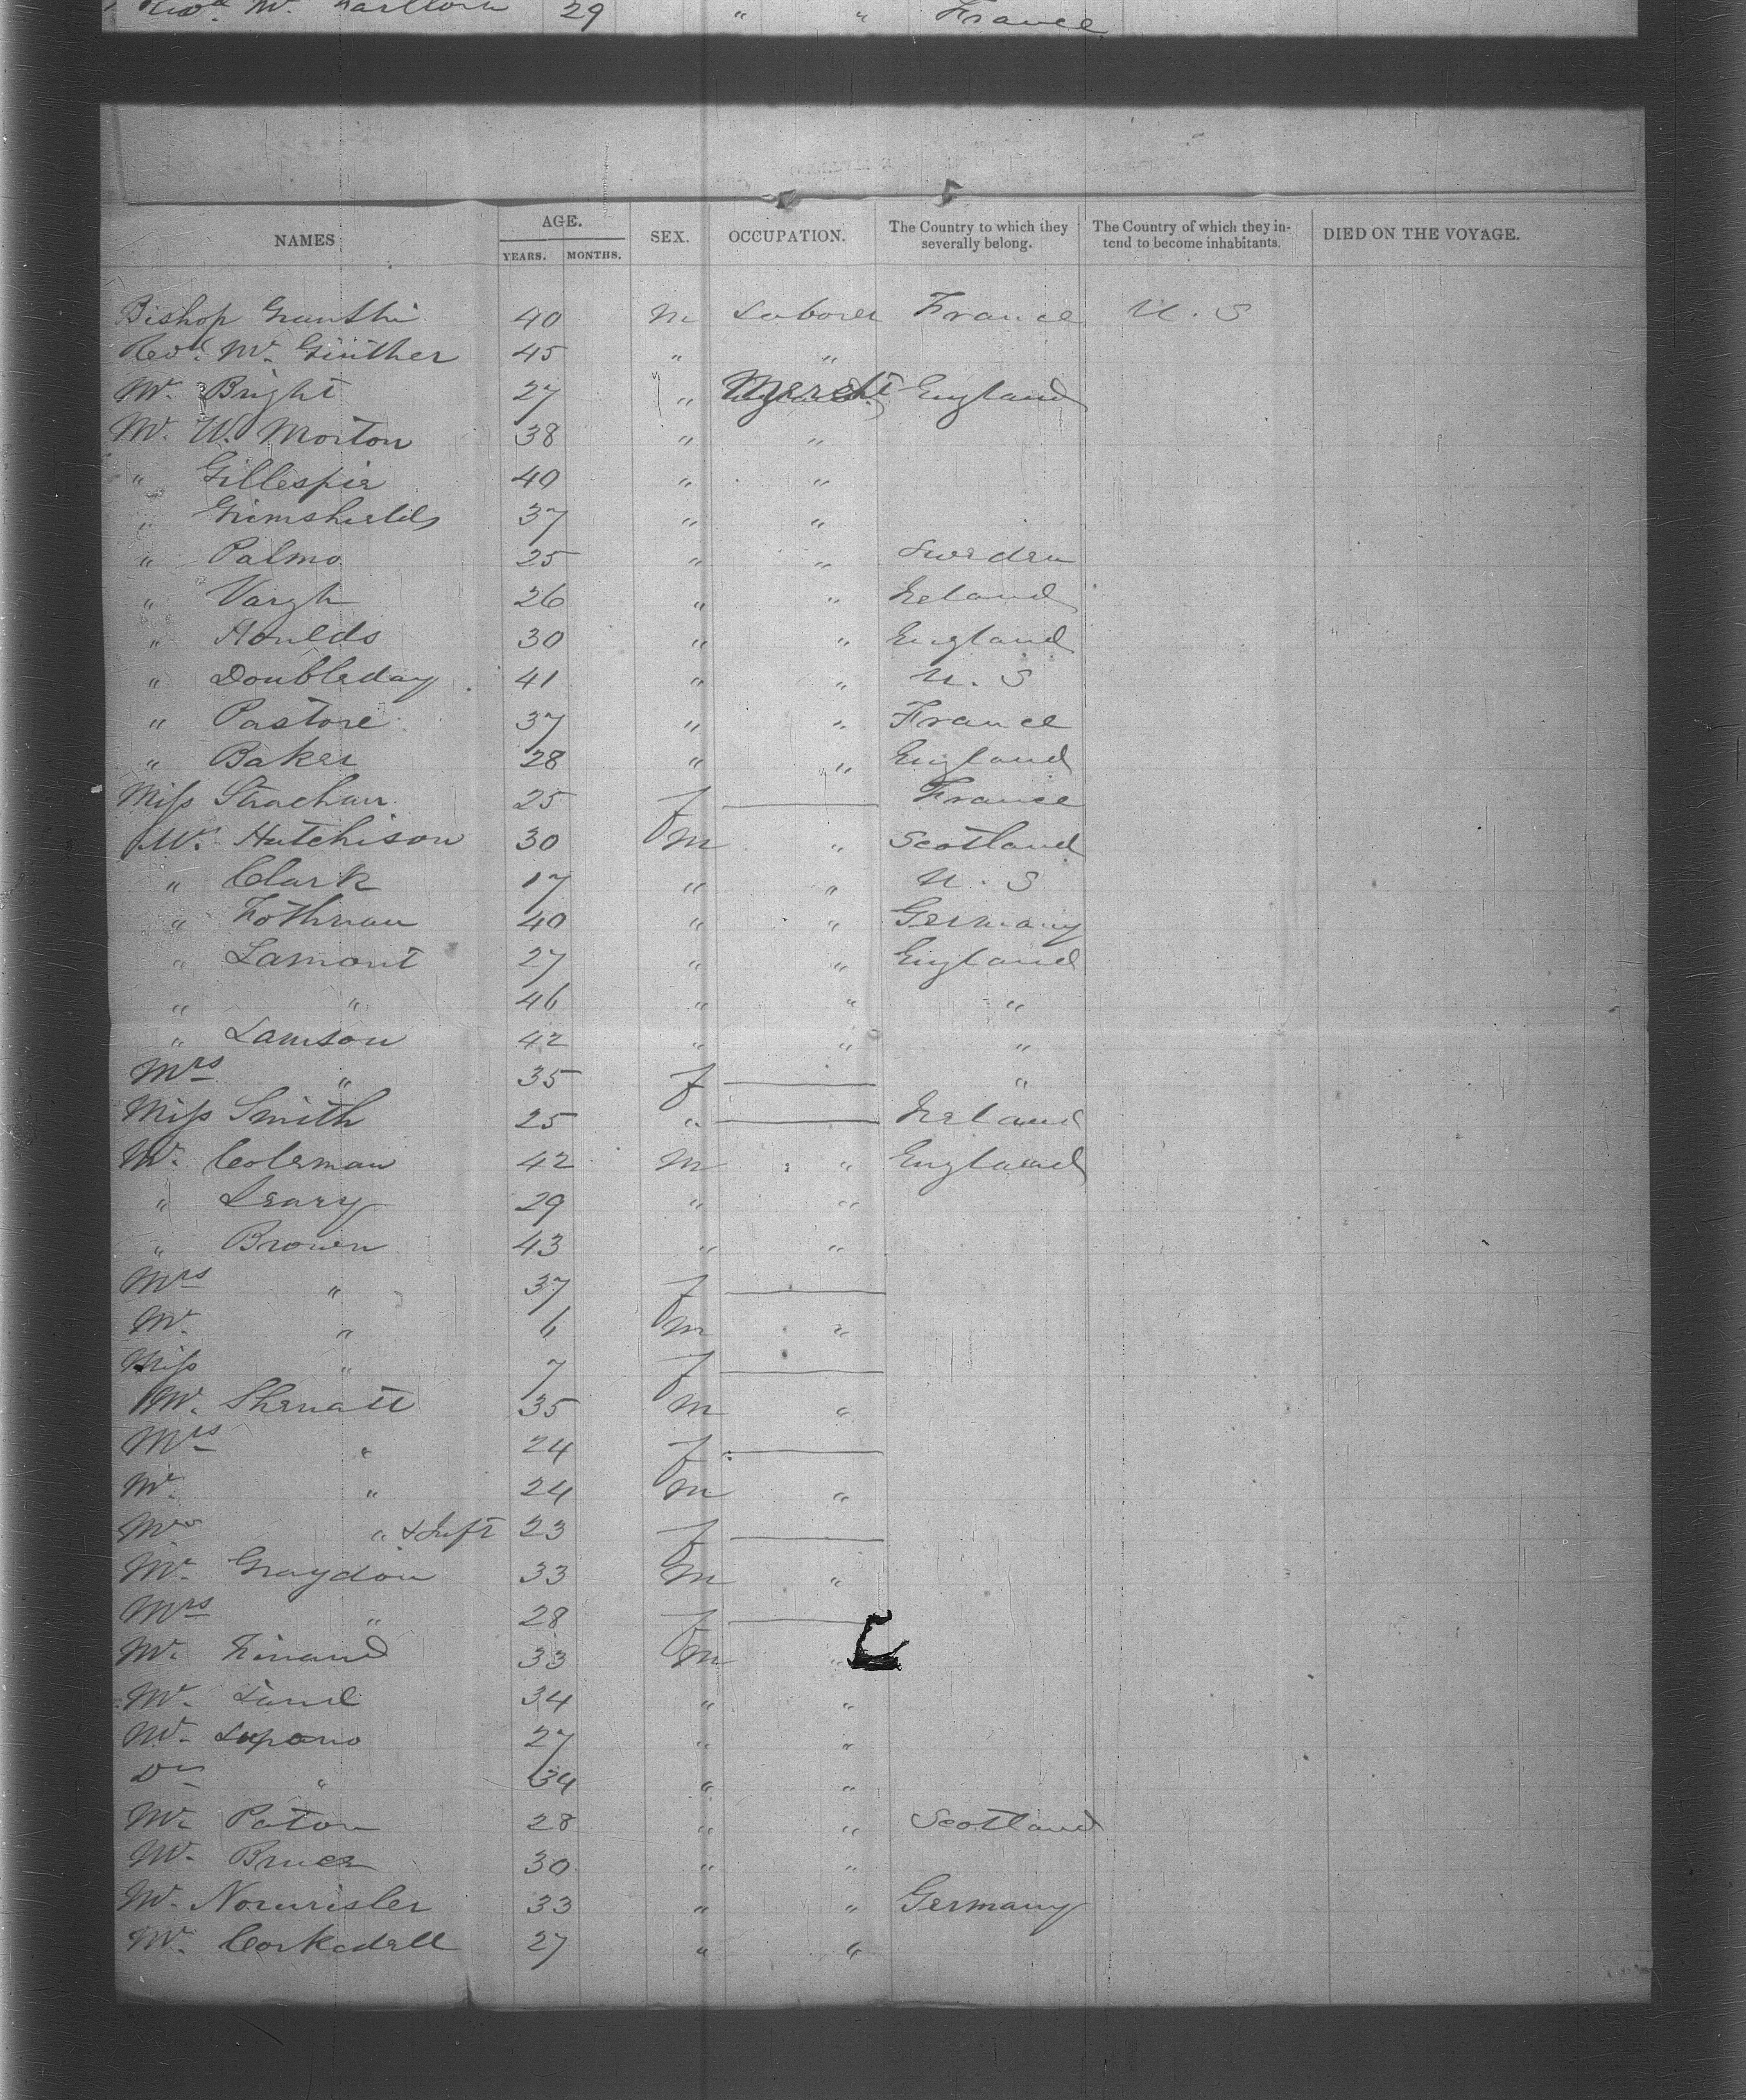 29 " " France
NAMES AGE. YEARS. MONTHS. SEX. OCCUPATION. The Country to which they severally belong. The Country of which they intend to become inhabitants. DIED ON THE VOYAGE.
Bishop 40 m Laborer France U.S
Revd. Mr. Günther 45 " "
Mr. Bright 27 " Mercht England
Mr. W. Morton 38 " "
" Gillespie 40 " "
" Grimshields 37 " "
" Palmo 25 " " Sweden
" Vargh 26 " " Ireland
" Houlds 30 " " England
" Doubleday 41 " " U.S
" Pastore 37 " " France
" Baker 28 " " England
Miss Strachan 25 f France
Mr. Hutchison 30 m " Scotland
" Clark 17 " " U.S
" 40 " " Germany
" Lamont 27 " " England
" " 46 " " "
" Lamson 42 " " "
Mrs " 35 f "
Miss Smith 25 " Ireland
Mr. Coleman 42 m " England
" Leary 29 " "
" Brown 43 " "
Mrs " 37 f
Mr. " 6 m "
Miss " 7 f
Mr. 35 m "
Mrs " 24 f
Mr. " 24 m "
Mrs " & Inft 23 f
Mr. Graydon 33 m "
Mrs " 28 f
Mr. 33 m "
Mr. 34 " "
Mr. 27 " "
Dr " 34 " "
Mr. Paton 28 " " Scotland
Mr. Bruce 30 " "
Mr. 33 " " Germany
Mr. Corkedell 27 " "